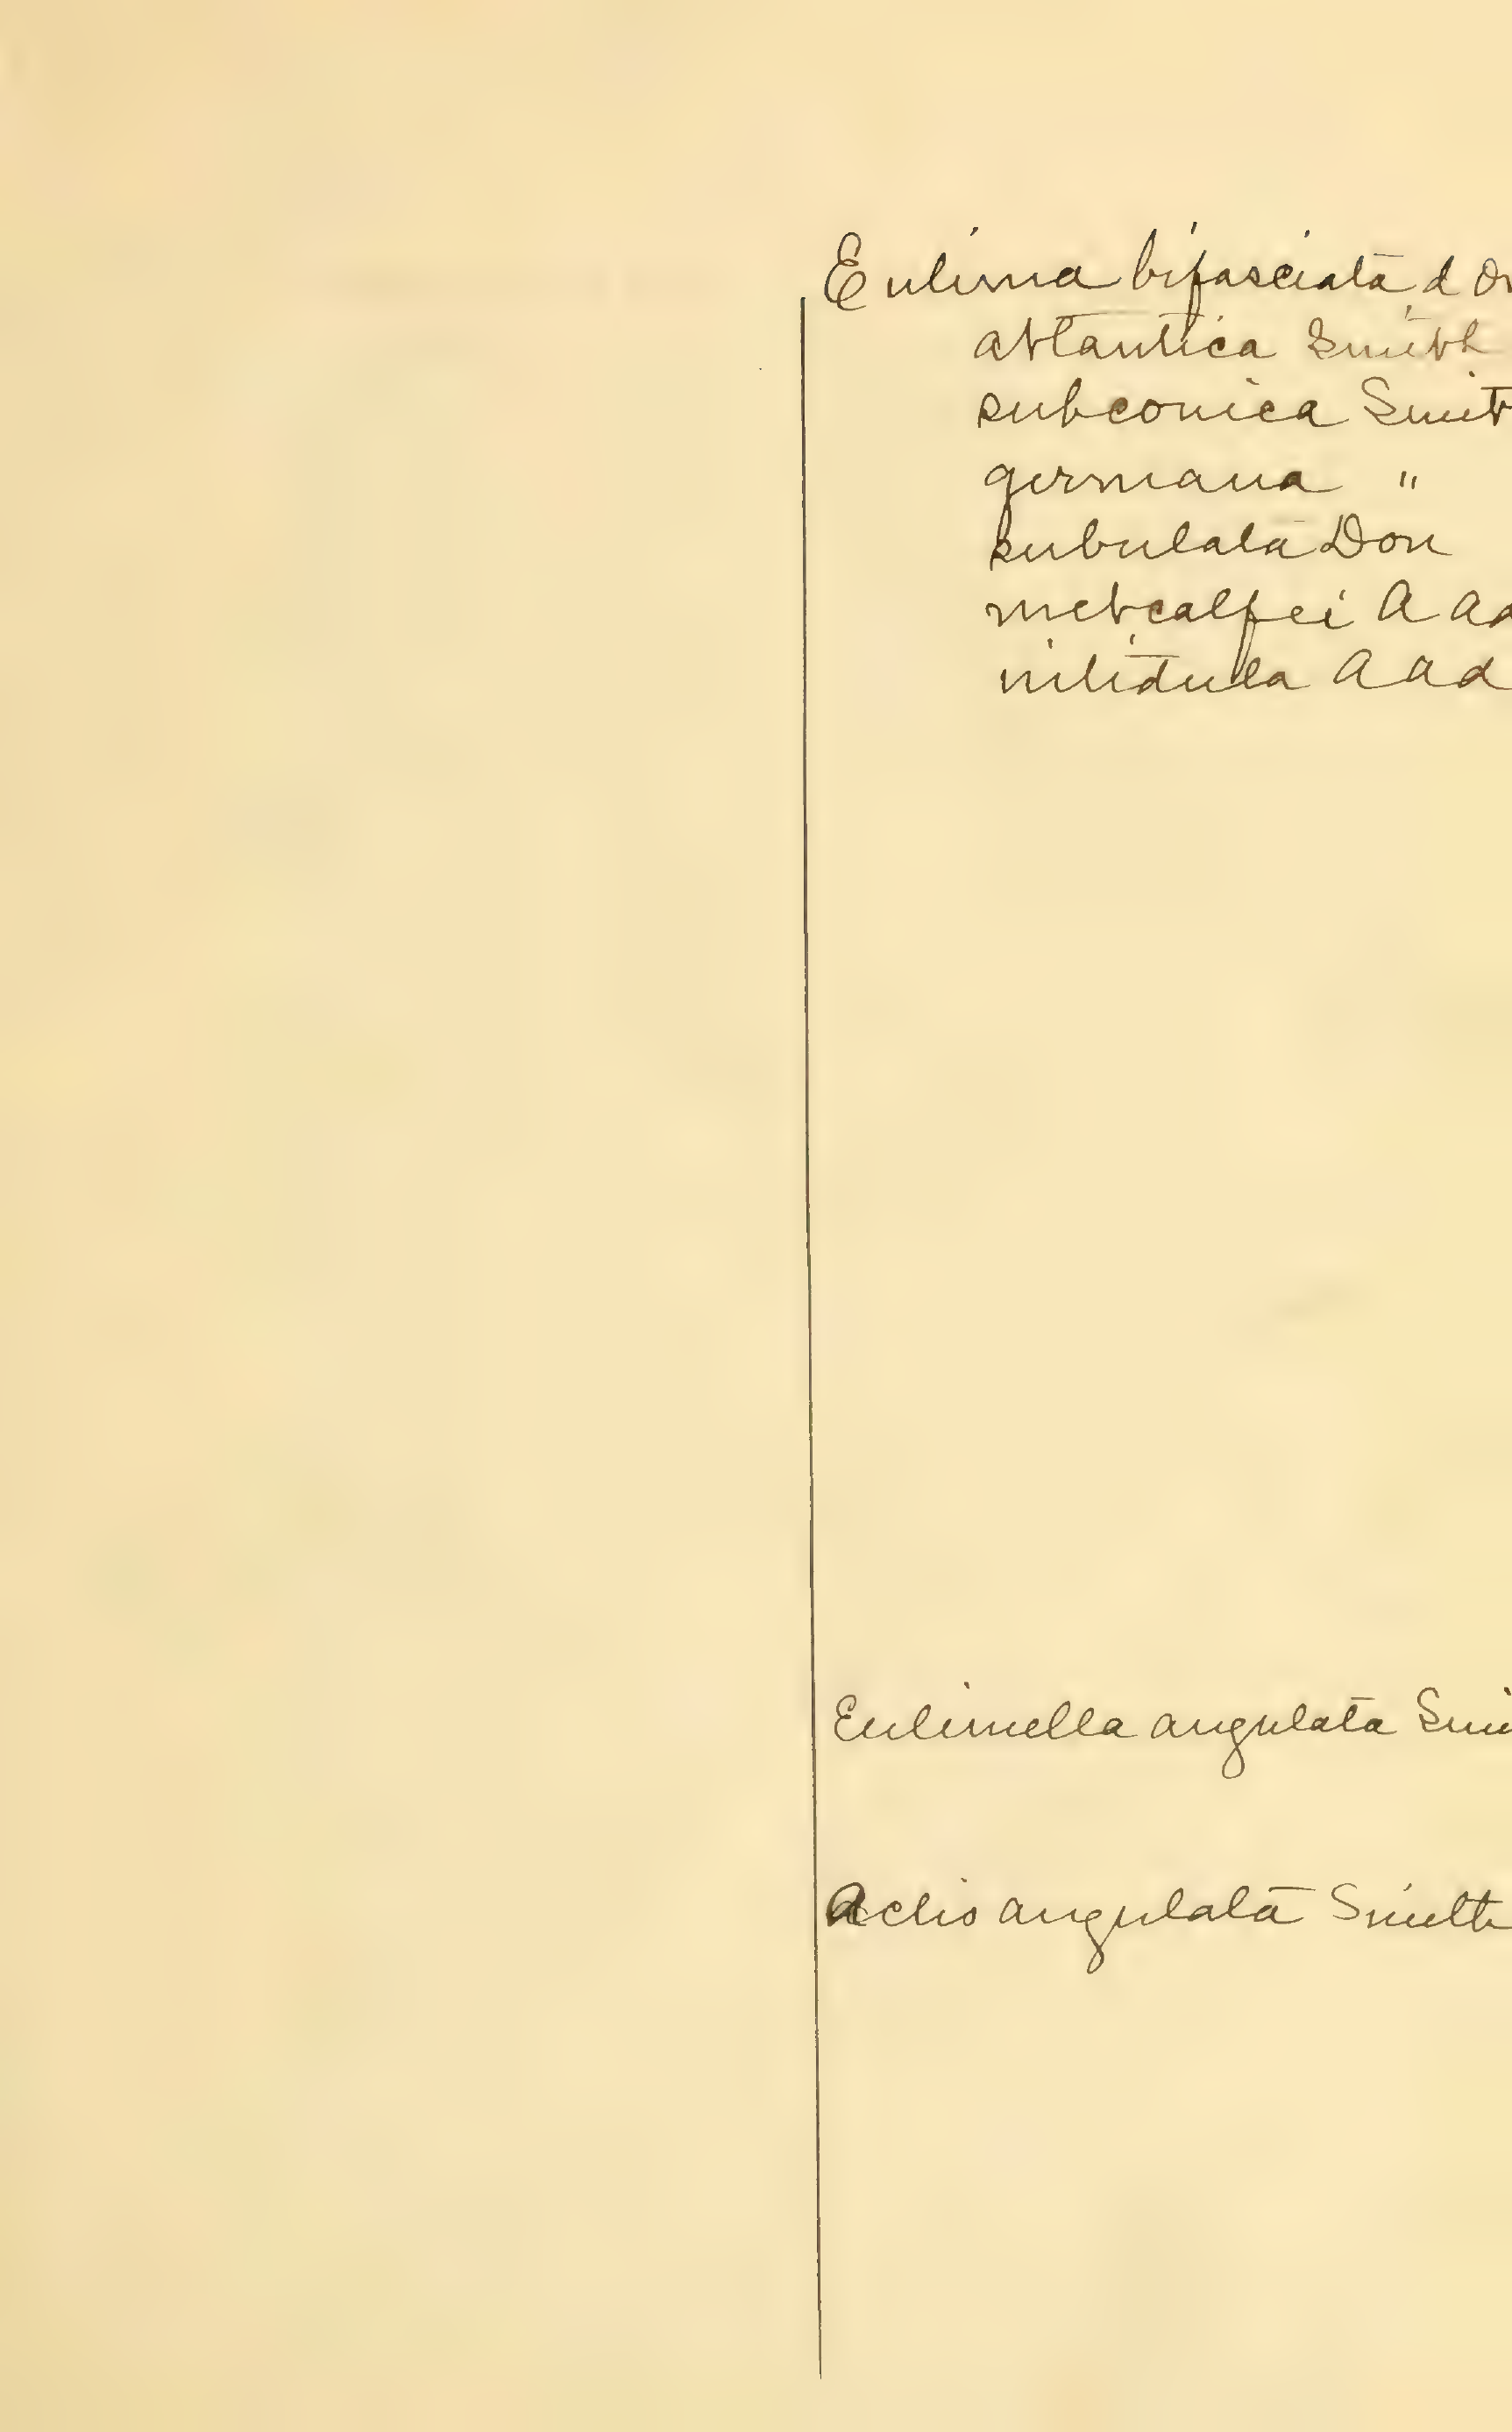 Eulima bifasciata d Or
atlantica Smith
subconica Smit
germana "
subulata Don
metcalfei A Ad
nitidula A Ad
Eulimella angulata Smi
Aclis angulata Smith